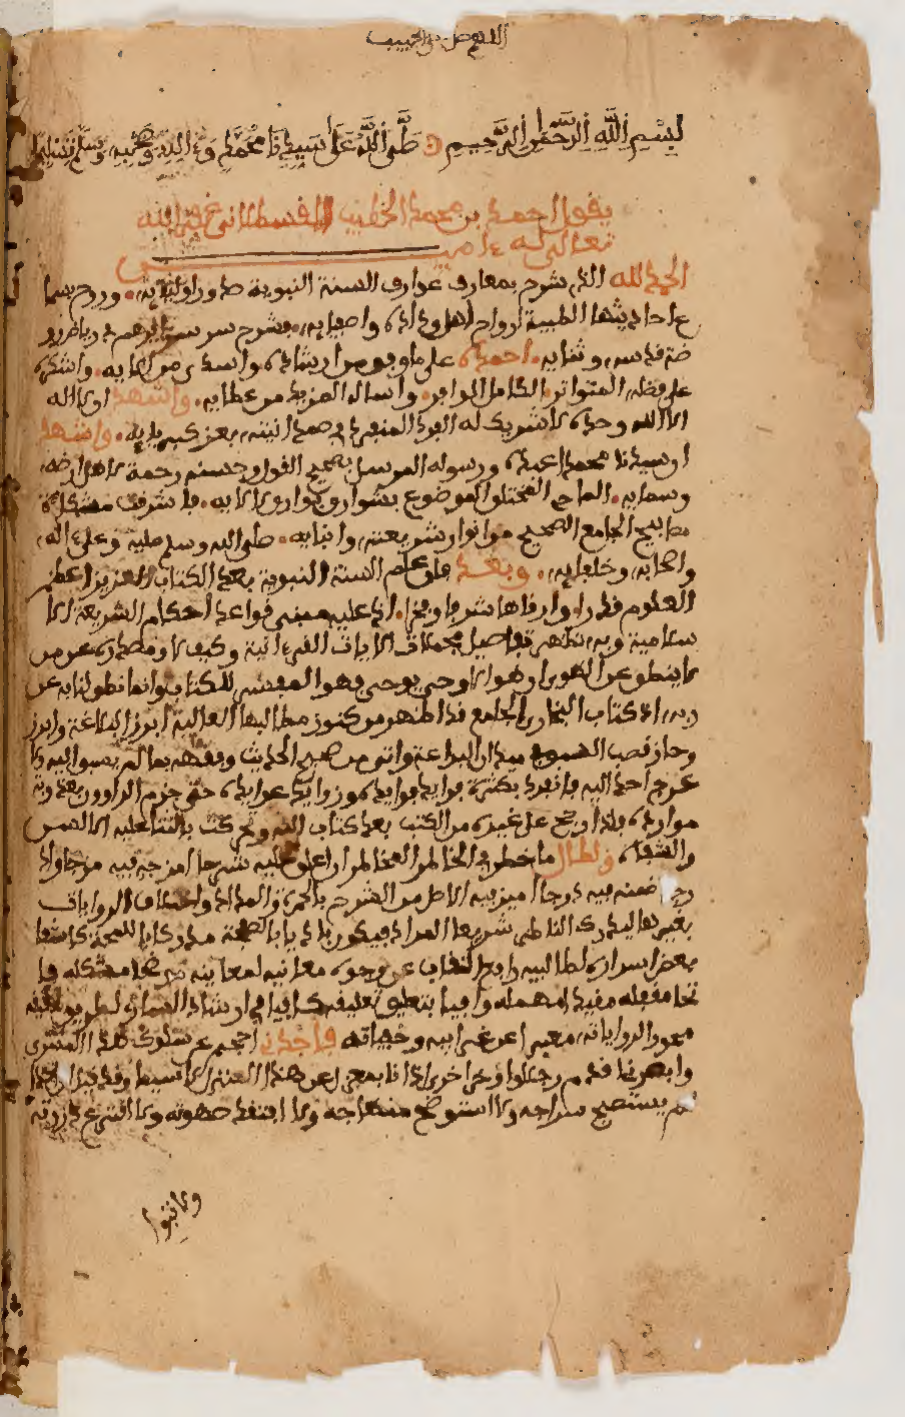 بسم الله الرحمن الرحيم صلى الله على سيدنا محمد وعلى اله وصحبه وسلم تسليما
يقول احمد بن محمد الخطيب القسطلانى غفر الله
تعالى له ءامين
الحمد لله الذى شرح بمعارف عوارف السنة النبوية صدور اوليايه. وروح بسما
ع احاديثها الطيبة ارواح اهل وداده واصفيايه. فسرح سر سرايرهم فى رياض رو
ضة قدسه وثنايه. احمده على ما وفق من ارشاده واسدى من الايه. واشكره
على فضله المتواتر الكامل الوافر. واساله المزيد من عطايه. واشهد ان لا اله
الا الله وحده لا شريك له الفرد المنفرد فى صمدانيته بعز كبريايه. واشهد
ان سيدنا محمدا عبده ورسوله المرسل بصحيح القول وحسنه رحمة لاهل ارضه
وسمايه. الماحى المختلق الموضوع بشوارق بوارق لالايه. فاشرقت مشكاة
مصابيح الجامع الصحيح من انوار شريعته وانبايه. صلى الله وسلم عليه وعلى اله
واصحابه وخلفايه. وبعد فان علم السنة النبوية بعد الكتاب العزيز اعظم
العلوم قدرا وارقاها شرفا وفخرا. اذ عليه مبنى قواعد احكام الشريعة الا
سلامية وبه تظهر تفاصيل مجملات الايات القرءانية وكيف لا ومصدره عن من
لا ينطق عن الهوى ان هو الا وحى يوحى فهو المفسر للكتاب وانما نطق لنا به عن
ربه. اذ كتاب البخارى الجامع قد اظهر من كنوز مطالبها العالية ابرز البلاغة وابرز
وحاز قصب السبوق ميدان البراعة واتى من صحيح الحديث وفقهه بما لم يسبق اليه ولا
عرج احد اليه فانفرد بكثرة فرايد فوايده وزوايد عوايده حتى جزم الراوون بعذوبة
موارده فلذا رجح على غيره من الكتب بعد كتاب الله وتحركت بالثنا عليه الالسن
والشفاه. ولطال ما خطر فى الخاطر المخاطر ان اعلق عليه شرحا امزجه فيه مزجا واد
رجه ضمنه فيه درجا اميز فيه الاصل من الشرح بالحمرة والمداد واختلاف الروايات
بغيرهما ليدرك الناظر سريعا المراد فيكون باديا بالصفحة مدركا باللمحة كاشفا
بعض اسراره لطالبيه رافع النقاب عن وجوه معانيه لمعانيه موضحا مشكله فا
تحا مقفله مقيدا مهمله وافيا بتغليق تعليقه كافيا فى ارشاد السارى لطريق تحقيقه
محررا لرواياته معبرا عن غرايبه وخفياته فاجدنى احجم عن سلوك هذا المسرى
وابصرنى اقدم رجلا واوخر اخرى اذ انا بمعزل عن هذا المنزل لا سيما وقد قيل ان احدا
لم يستصبح سراجه ولا استوضح منهاجه ولا اقتعد صهوته ولا افترع ذروته
ولا تبوا